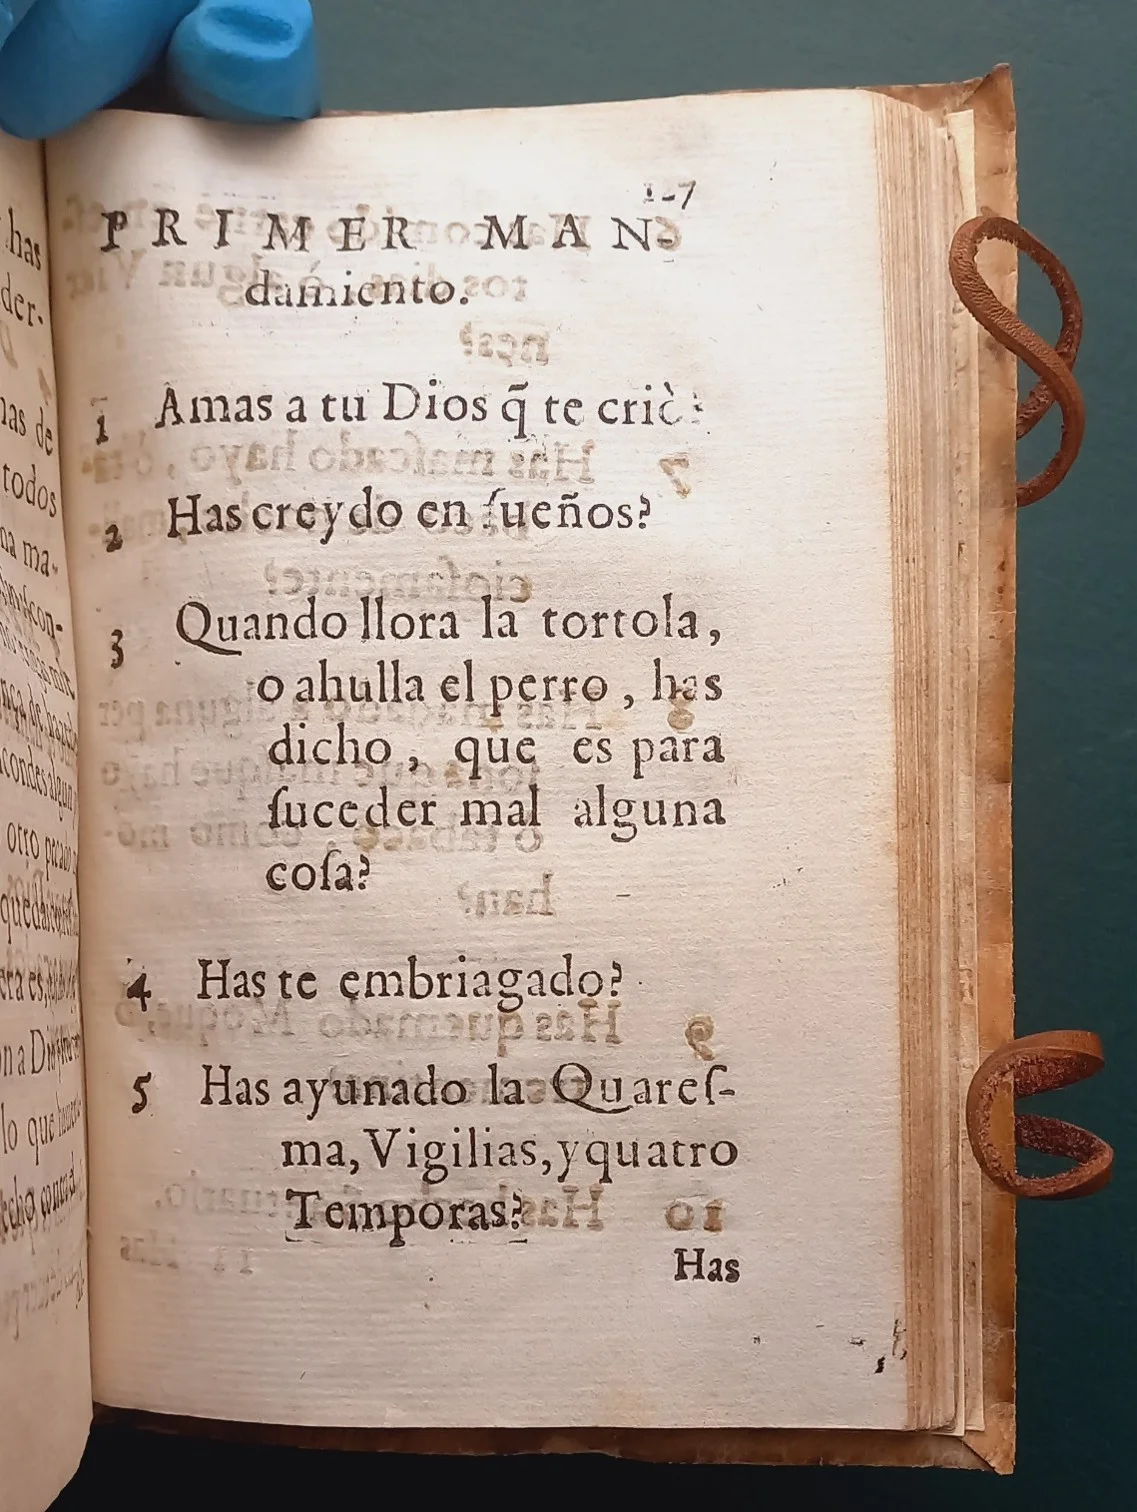 has
der-
nas de
todos
na ma-
con-
otro pecado
lo que
127
PRIMER MAN-
damiento.
1 Amas a tu Dios q̃ te criò?
2 Has creydo en ſueños?
3 Quando llora la tortola,
o ahulla el perro, has
dicho, que es para
ſuceder mal alguna
coſa?
4 Has te embriagado?
5 Has ayunado la Quareſ-
ma, Vigilias, y quatro
Temporas?
Has